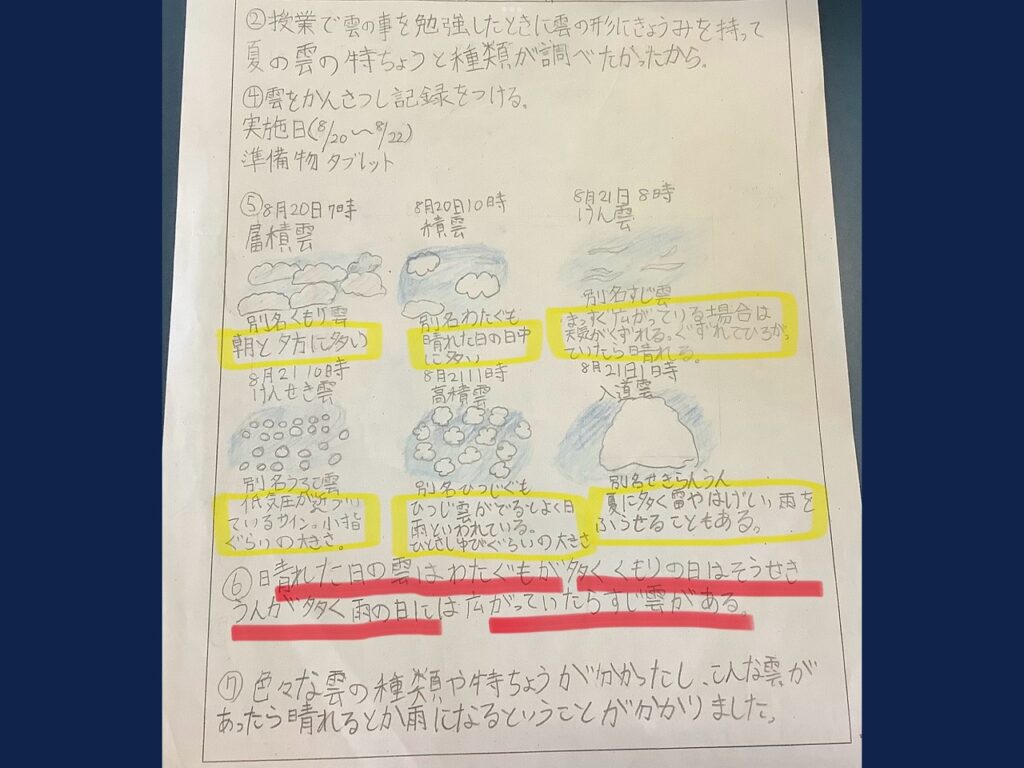 ②授業で雲の事を勉強したときに雲の形にきょうみを持って
夏の雲の特ちょうと種類が調べたかったから。
④雲をかんさつし記録をつける。
実施日(8/20〜8/22)
準備物タブレット
⑤8月20日7時
層積雲
別名くもり雲
朝と夕方に多い
8月20日10時
積雲
別名わたぐも
晴れた日の日中
に多い
8月21日8時
けん雲
別名すじ雲
まっすぐ広がっている場合は
天気がくずれる。くずれてひろがっ
ていたら晴れる。
8月21 10時
けんせき雲
別名うろこ雲
低気圧が近づい
ているサイン。小指
ぐらいの大きさ。
8月21 11時
高積雲
別名ひつじぐも
ひつじ雲がでるとよく日
雨といわれている。
ひとさし
ゆびぐらいの大きさ
8月21日1時
入道雲
別名せきらんうん
夏に多く雷やはげしい雨を
ふらせることもある。
⑥晴れた日の雲はわたぐもが多くくもりの日はそうせき
うんが多く雨の日には広がっていたらすじ雲がある。
⑦色々な雲の種類や特ちょうが分かったし、こんな雲が
あったら晴れるとか雨になるということが分かりました。